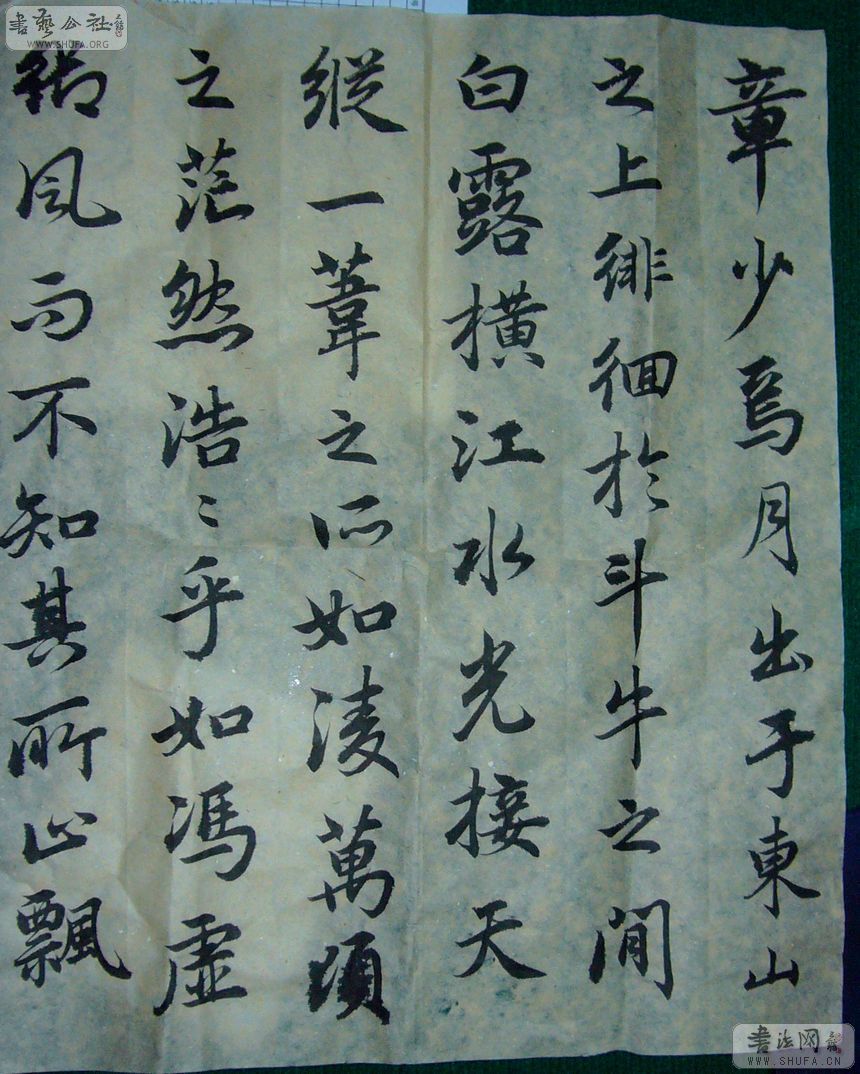 章少焉月出于東山
之上徘徊於斗牛之間
白露橫江水光接天
縱一葦之所如淩萬頃
之茫然浩〻乎如馮虛
御風而不知其所止飄
書藝公社
WWW.SHUFA.ORG
書法网
WWW.SHUFA.CN